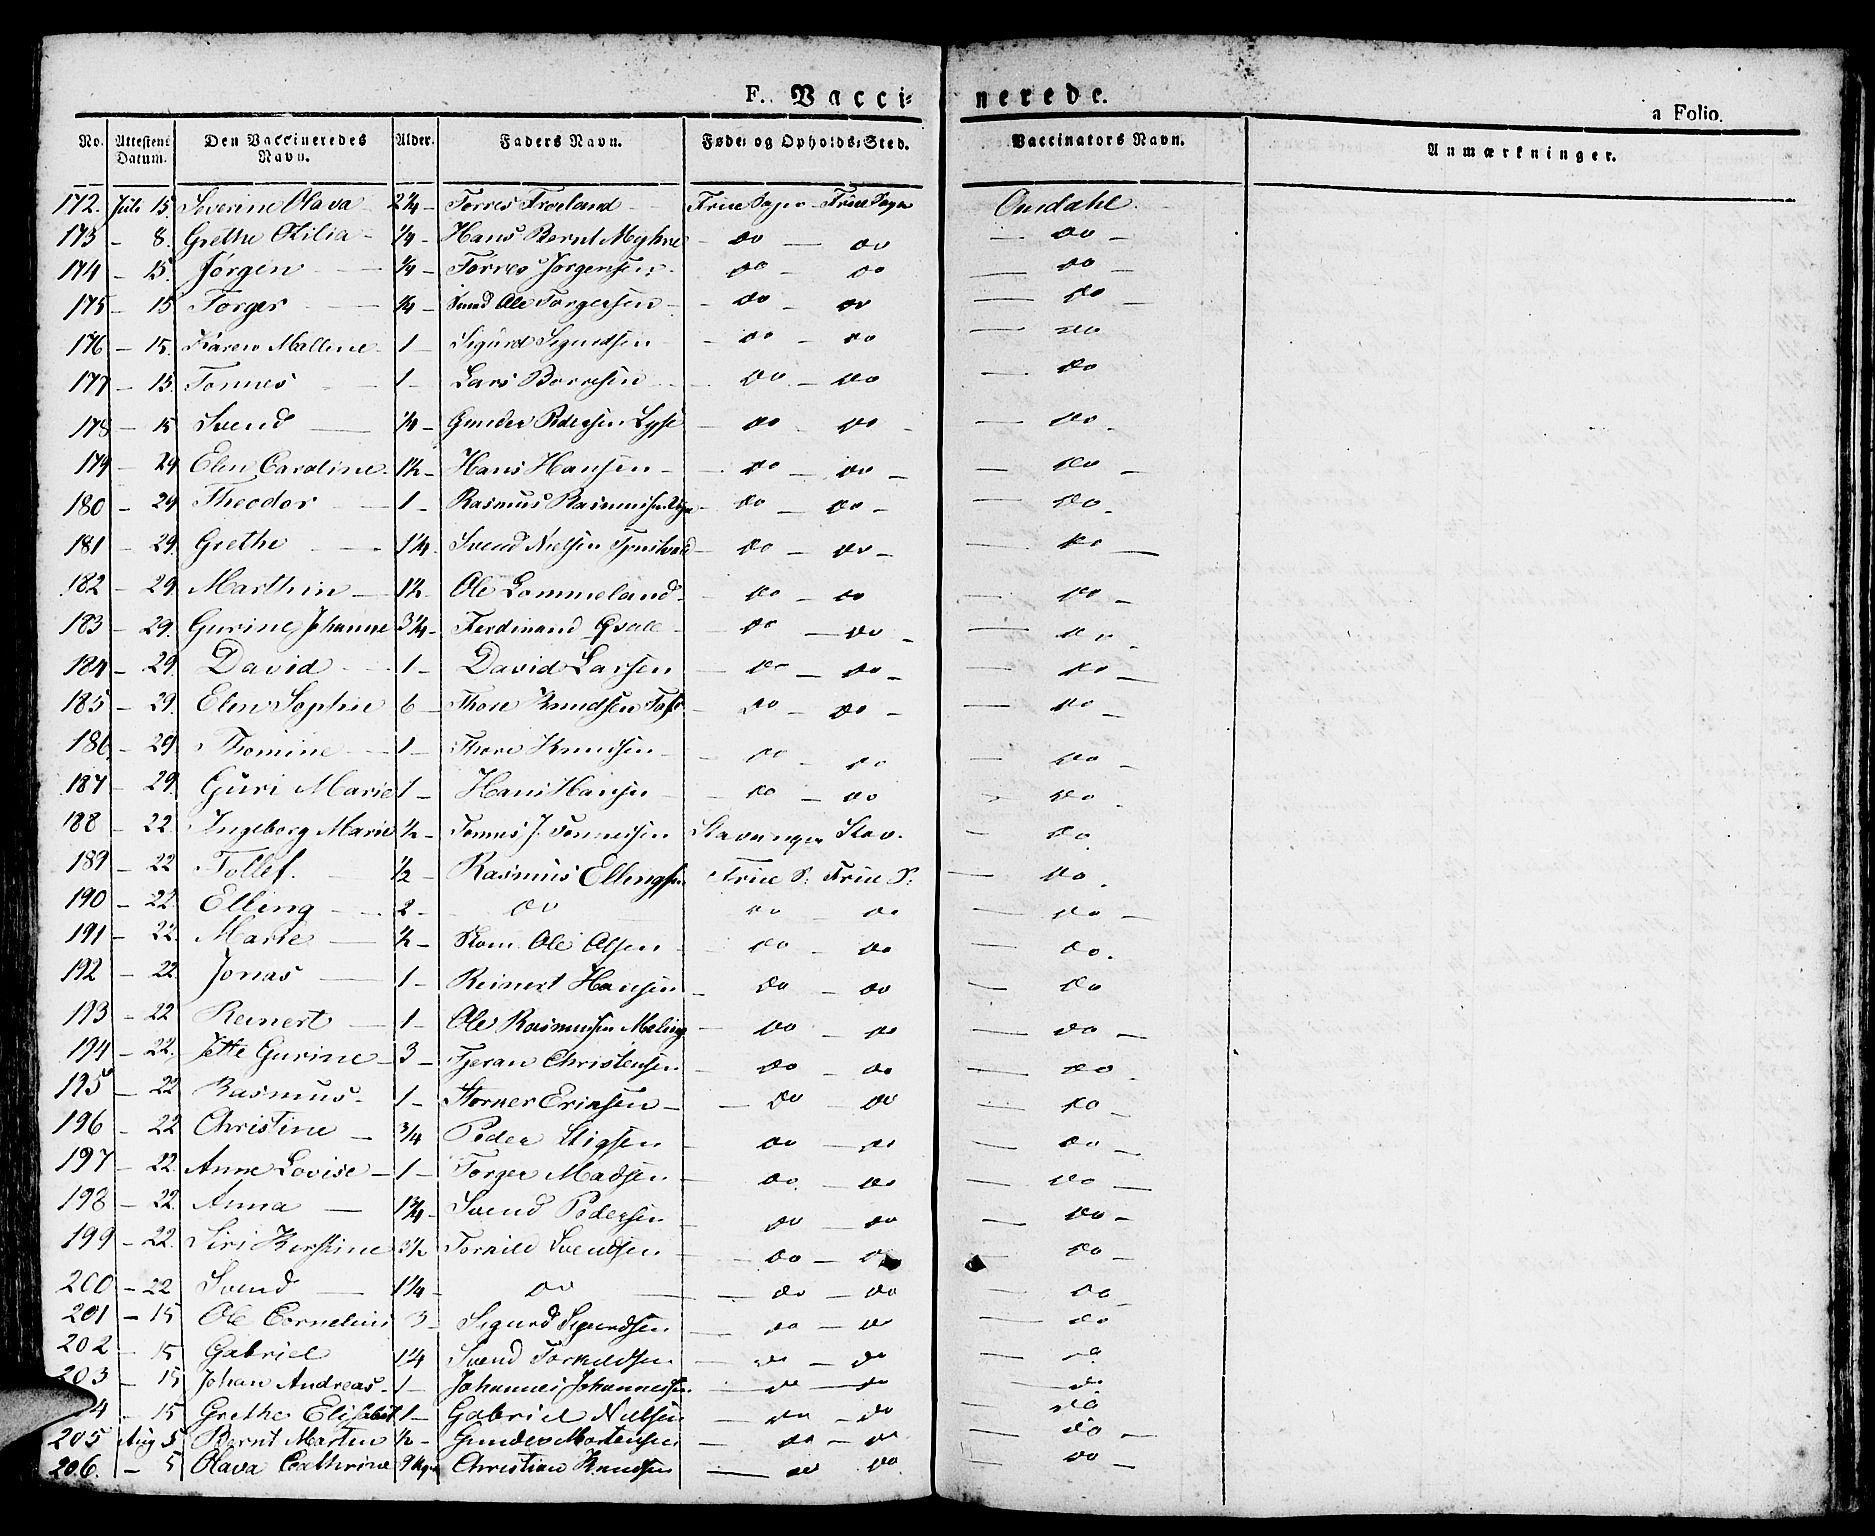 F. Vacci- nerede.
a Folio.
No. Attestens Datum. Den Vaccineredes Navn. Alder. Faders Navn. Føde- og Opholds-Sted. Vaccinators Navn. Anmærkninger.
172. Juli 15 Severine Olava 2¼ - Torres Froeland Frue Sogn - Frue Sogn Omdahl
173 - 8. Grethe Otilia - ¼ - Hans Bernt Myhre - do - do - do -
174 - 15. Jørgen - ¼ - Torres Jorgensen - do - do - do -
175 - 15 Torger - ¼ - Svend Ole Torgersen - do - do - do -
176 - 15. Karen Malline - 1 - Sigurd Sigurdsen - do - do - do
177 - 15. Tonnes - 1 - Lars Borresen - do - do - do
178 - 15 Svend - ¼ - Gunder Pedersen Lyse - do - do - do -
179 - 29 Elen Caroline - 1½ - Hans Hansen - do - do - do -
180 - 29 Theodor - 1 - Rasmus Rasmussen - do - do - do -
181 - 29. Grethe - 1¼ - Svend Nielsen - do - do - do -
182 - 29 Marthin - 1½ - Ole Lommeland - do - do - do -
183 - 29. Gurine Johanne 3¼ - Ferdinand Qvale - do - do - do -
184 - 29. David - 1 - David Larsen - do - do - do -
185 - 29. Elen Sophie 6 - Thore Knudsen - do - do - do -
186 - 29. Thomine - 1 - Thore Knudsen - do - do - do -
187 - 29. Guri Marie 1 - Hans Hansen - do - do - do -
188 - 22. Ingeborg Marie ½ - Tonnes J. Tonnessen Stavanger Stav. - do
189 - 22 Tollef. ½ - Rasmus Ellingsen Frue S: Frue S: - do -
190 - 22. Elling - 2 - do do - do - do -
191 - 22. Marie - ½ - Ole Olsen - do - do - do.
192 - 22 Jonas - 1 - Reinert Hansen - do - do - do
193 - 22 Reinert - 1 - Ole Rasmussen Meling - do - do - do -
194 - 22. Jette Gurine - 3 - Tjeran Christensen - do - do - do -
195 - 22 Rasmus - 1 - Storker Eriksen - do - do - do -
196 - 22 Christine - ¾ Peder Stigsen - do - do - do -
197 - 22. Anne Lovise - 1 - Torger Madsen - do - do - do -
198 - 22. Anna - 1¾ - Svend Pedersen - do - do - do -
199 - 22. Siri Kerstine 3½ - Torkild Svendsen - do - do - do -
200 - 22 Svend - 1¼ - do - do - do - do -
201 - 15 Ole Cornelius 3 - Sigurd Sigurdsen - do - do - do
202 - 15 Gabriel 1¼ - Svend Torkildsen - do - do - do
203 - 15 Johan Andreas - 1 - Johannes Johannessen - do - do - do.
4 - 15 Grethe Elisabet 1 - Gabriel Nielsen - do - do - do
205 Aug 5 Bernt Martin ½ - Gunder Mortensen - do - do - do -
206. - 5 Olava Cathrine Christian Knudsen - do do - do -